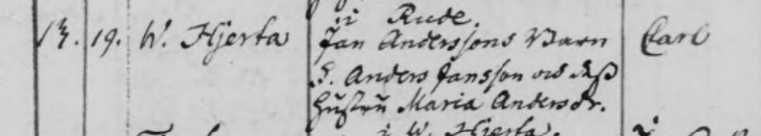 i Rude.
13. 19. W. Hjerta Jan Anderssons Barn Carl
S. Anders Jansson och dess
Hustru Maria Andersdr.
i W. Hjerta.